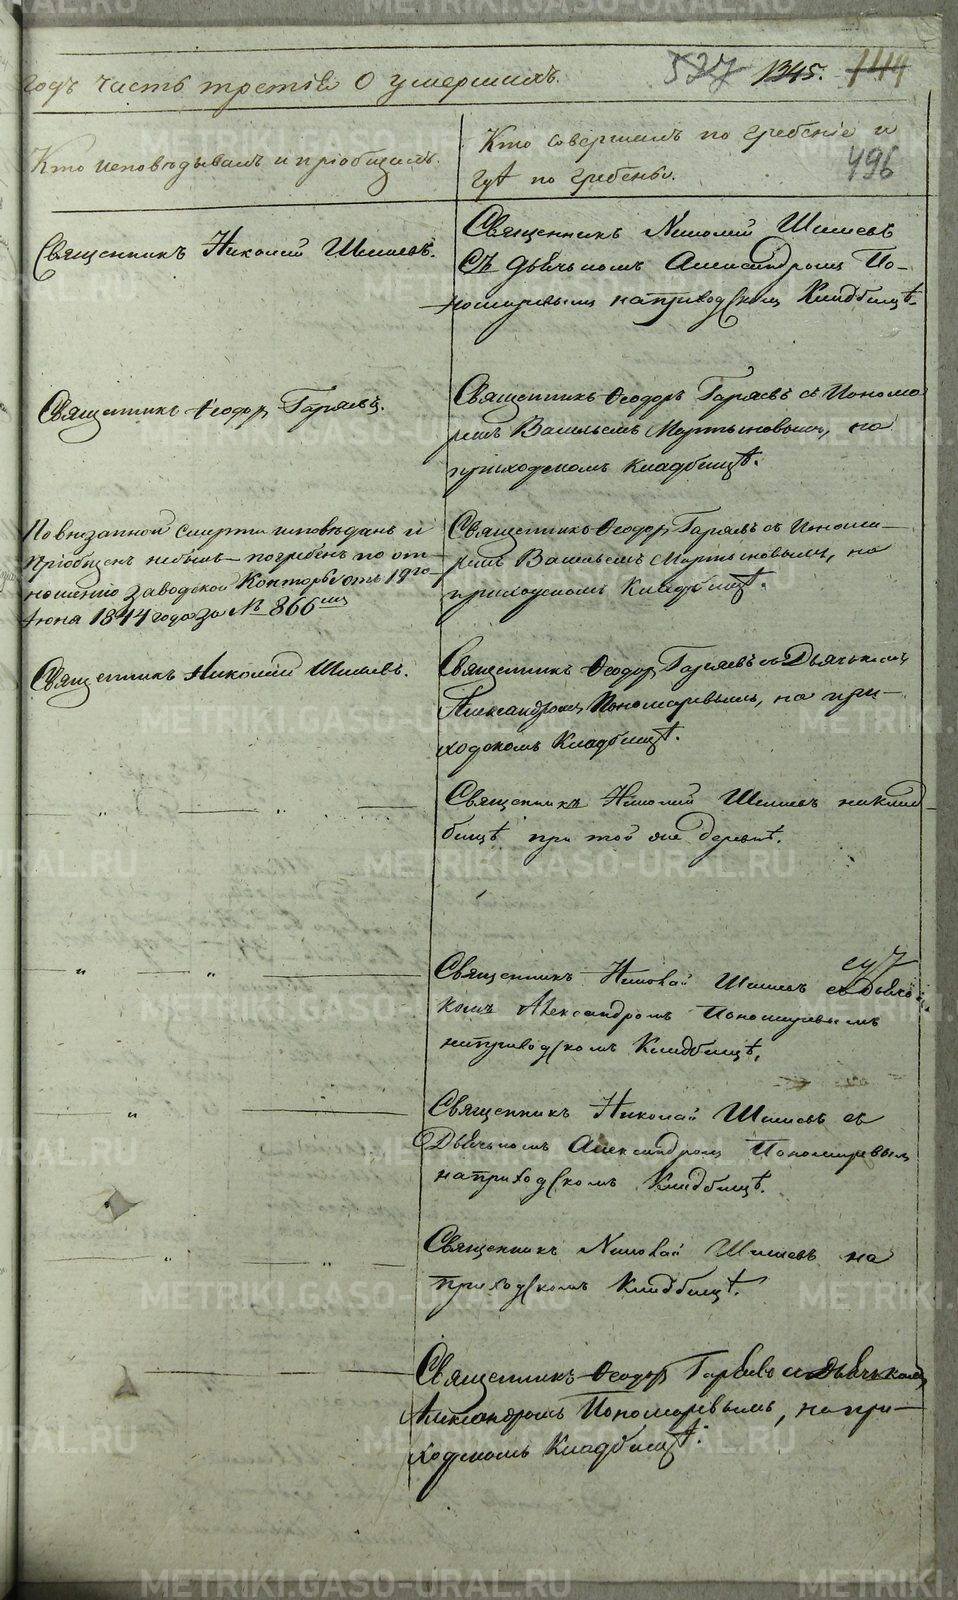 годъ часть третія О умершихъ. 527 1345. 144
Кто исповѣдывалъ и пріобщалъ.
Кто совершалъ погребеніе и
гдѣ погребены.
496
Священникъ Николай Шишевъ.
Священникъ Николай Шишевъ
съ дьячькомъ Александромъ По-
номаревымъ на приходскомъ Кладбищѣ.
Священникъ Ѳеодоръ Гаряевъ.
Священникъ Ѳеодоръ Гаряевъ съ Понома
ремъ Васильемъ Мартыновымъ, на
приходскомъ кладбищѣ.
По внезапной смерти исповѣданъ и
пріобщенъ небылъ – погребенъ по от-
ношенію заводской Конторы отъ 19го
Іюня 1844 года за № 866мъ
Священникъ Ѳеодоръ Гаряевъ съ Понома-
ремъ Васильемъ Мартыновымъ, на
приходскомъ Кладбищѣ.
Священникъ Николай Шишевъ.
Священникъ Ѳеодоръ Гаряевъ съ Дьячькомъ
Александромъ Пономаревымъ, на при-
ходскомъ Кладбищѣ.
— „ — „ —
Священникъ Николай Шишевъ на клад-
бищѣ при той же деревнѣ.
— „ — „ —
Священникъ Николай Шишевъ съ дьячь
комъ Александромъ Пономаревымъ
на приходскомъ Кладбищѣ.
— „ —
Священникъ Николай Шишевъ съ
Дьячькомъ Александромъ Пономаревымъ
на приходскомъ Кладбищѣ.
— „ — „ —
Священникъ Николай Шишевъ на
приходскомъ Кладбищѣ.
Священникъ Ѳеодоръ Гаряевъ съ Дьячькомъ
Александромъ Пономаревымъ, на при-
ходскомъ Кладбищѣ.
METRIKI.GASO-URAL.RU